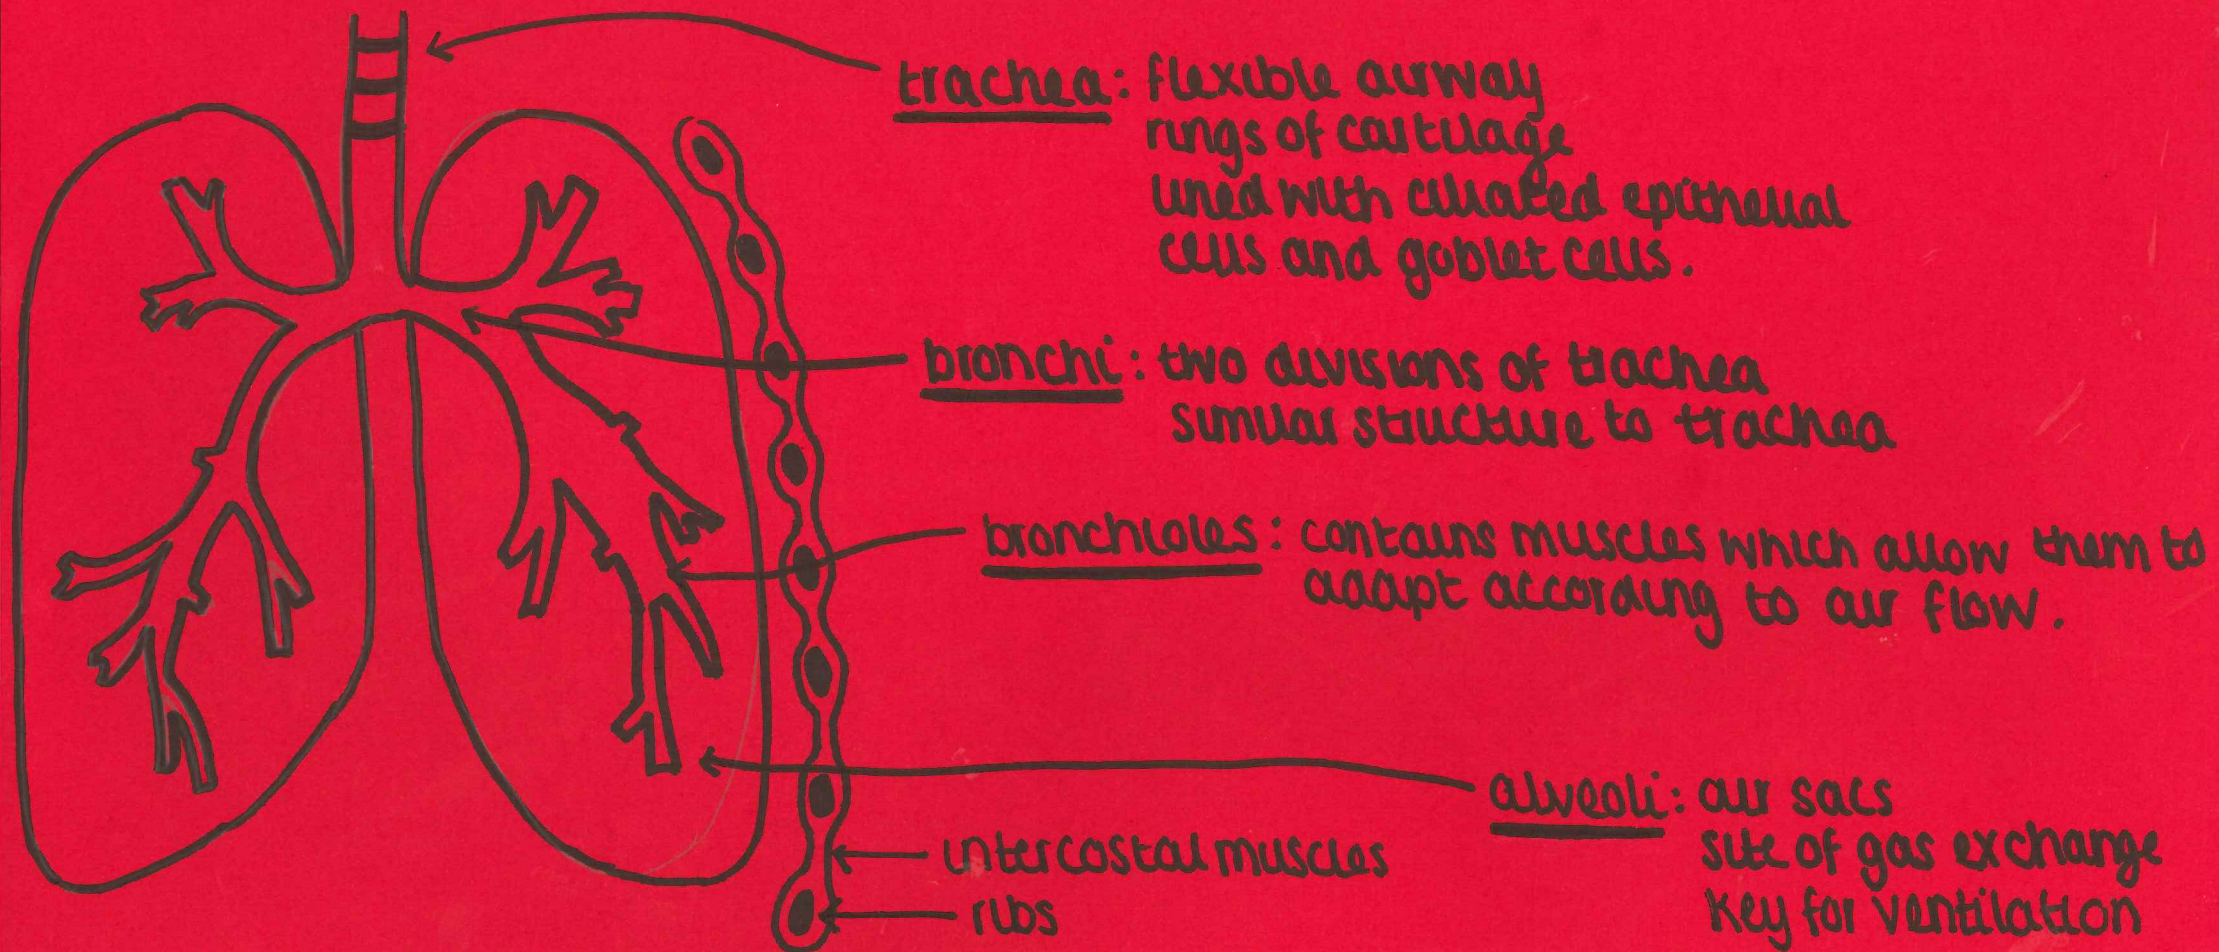 trachea: flexible airway
rings of cartilage
lined with ciliated epithelial
cells and goblet cells.
bronchi: two divisions of trachea
similar structure to trachea
bronchioles: contains muscles which allow them to
adapt according to air flow.
alveoli: air sacs
site of gas exchange
key for ventilation
intercostal muscles
ribs